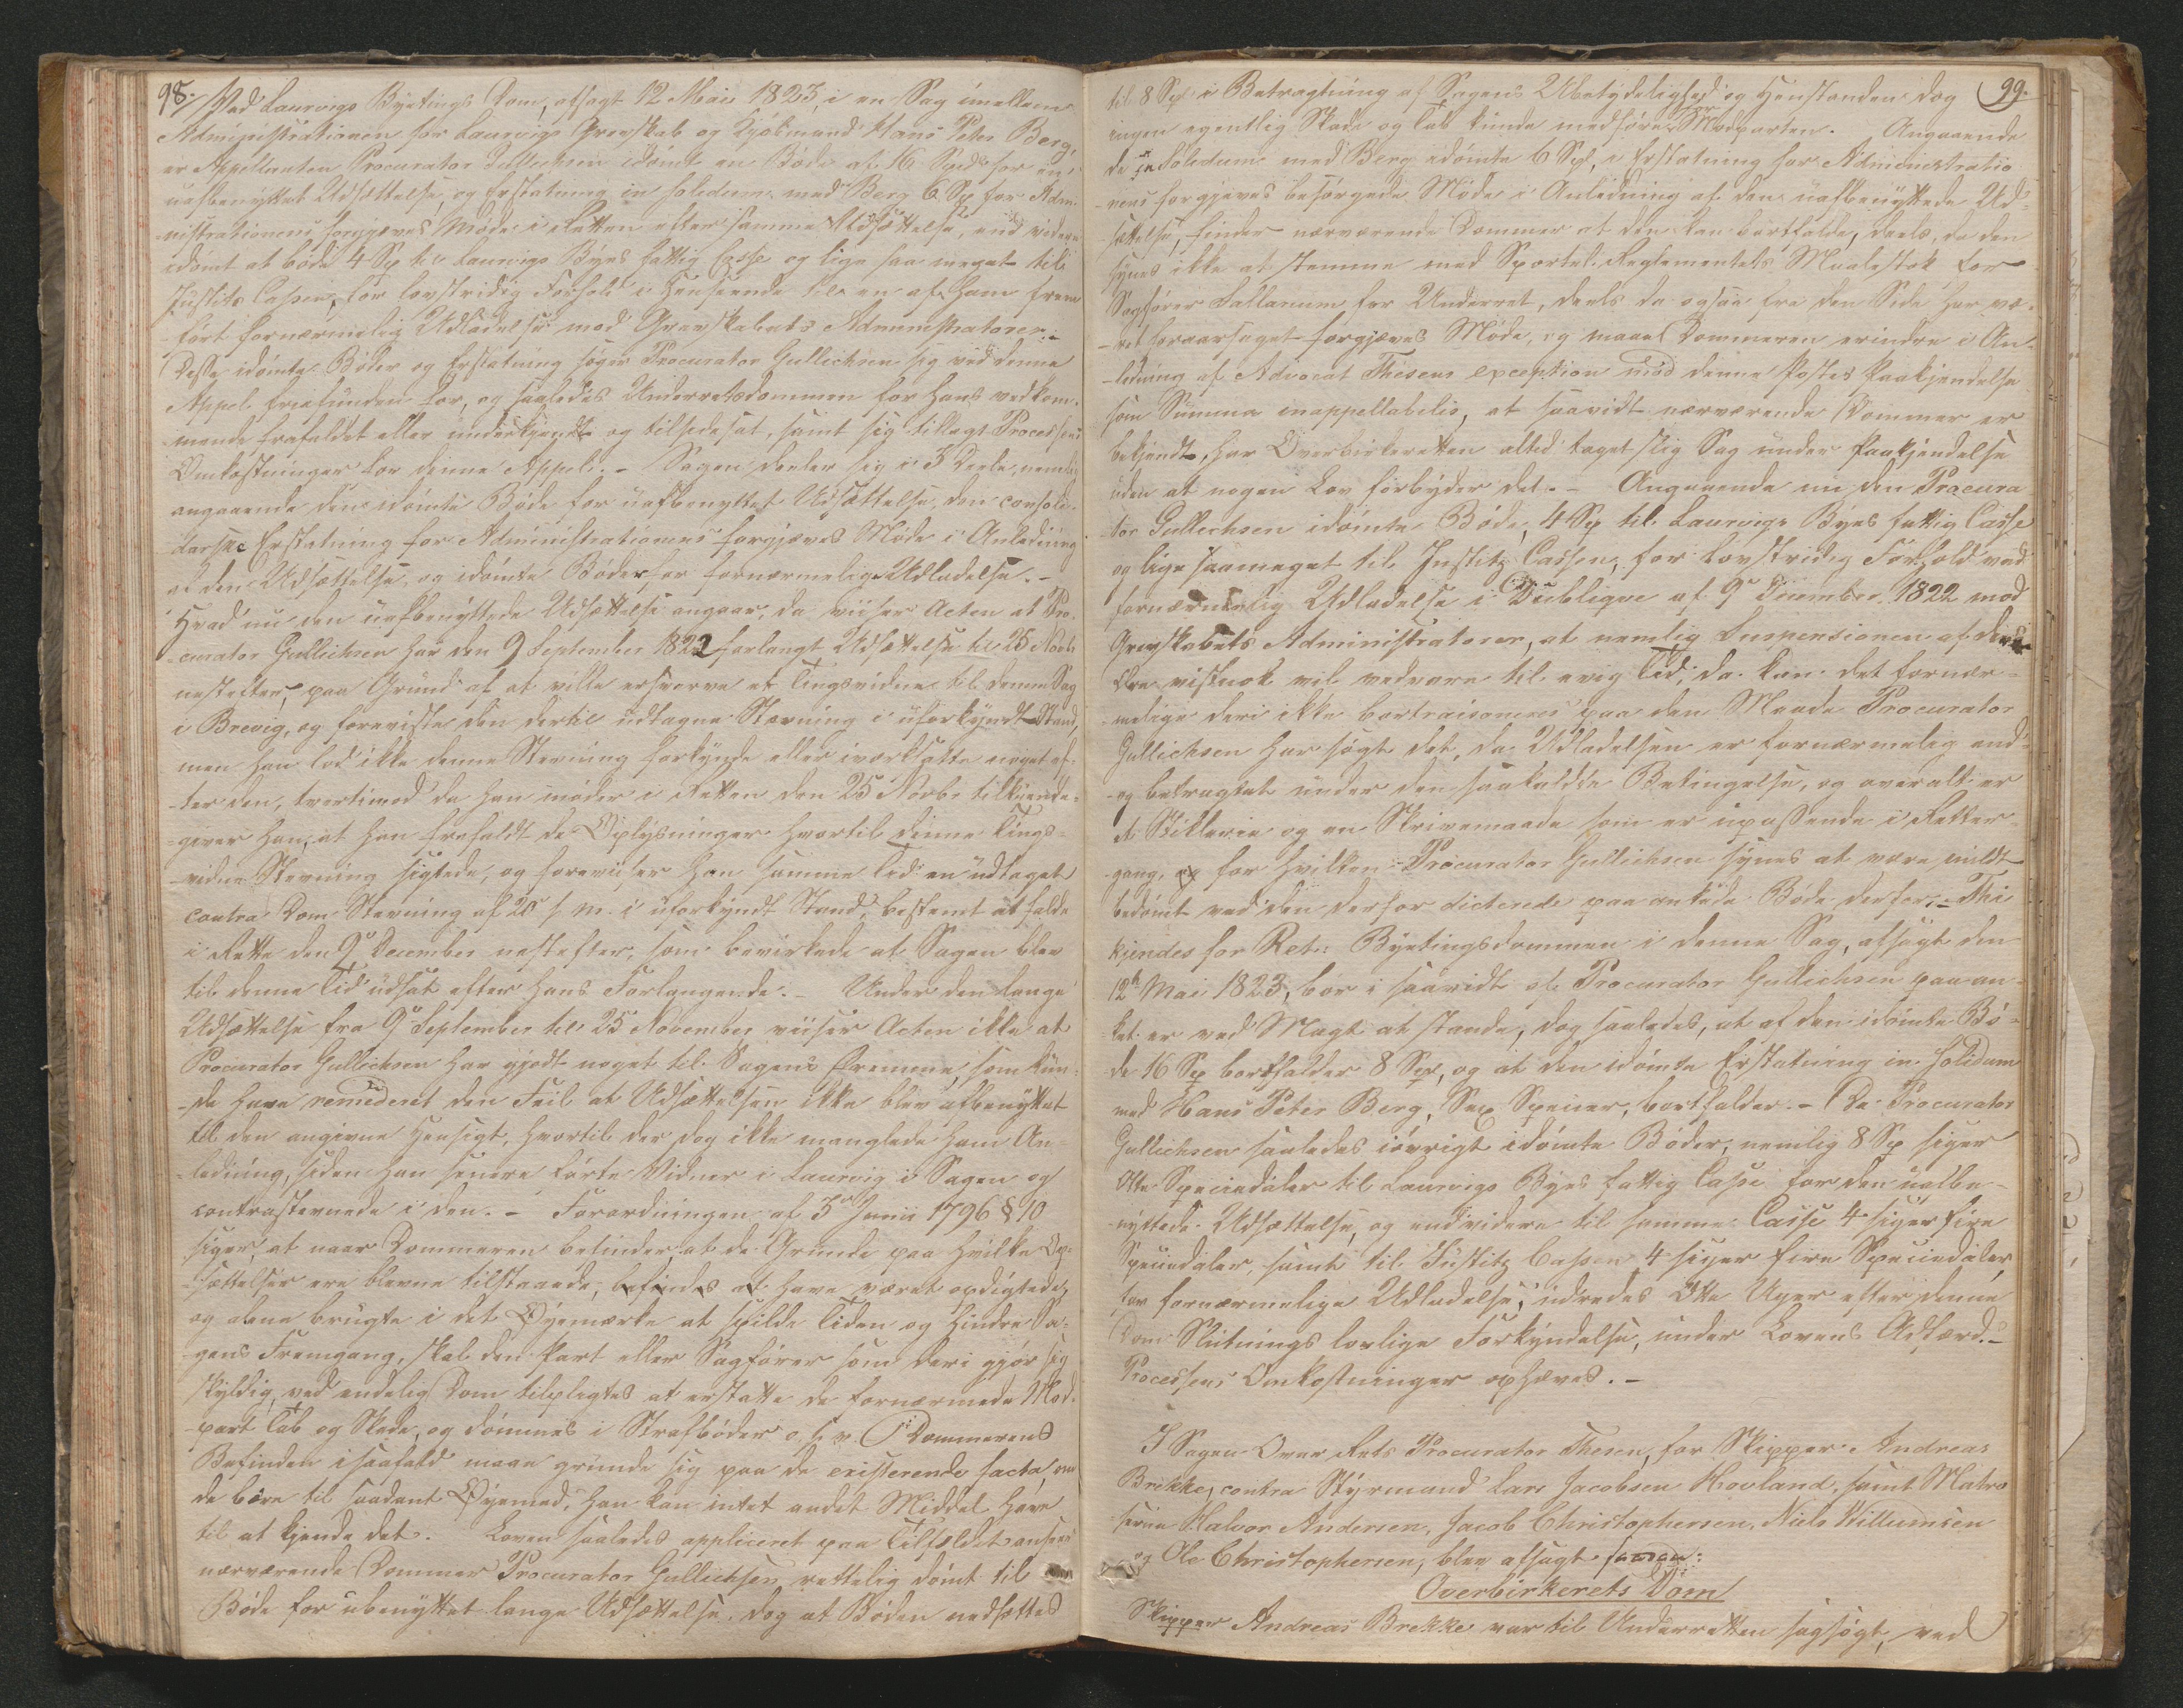 98.
Ved Laurvigs Byetings Dom, afsagt 12 Mai 1823, i en Sag imellem
Administrationen for Laurvigs Grevskab og Kjøbmand Hans Peter Berg,
er Appellanten Procurator Gullichsen idømt en Bøde af 16 Spd for en
uafbenyttet Udsættelse, og Erstatning in solidum med Berg 6 Sp for Admi-
-nistrationens forgjæves Møde i Retten efter samme Udsættelse, end videre
idømt at bøde 4 Sp til Laurvigs Byes fattig Casse og lige saa meget til
Justits Cassen, for lovstridig Forhold i Henseende til en af ham frem
ført fornærmelig Udladelse mod Grevskabets Administratorer.-
Disse idømte Bøder og Erstatning søger Procurator Gullichsen sig ved denne
Appel friefunden for, og saaledes Underretsdommen for hans vedkom-
mende frafaldet eller underkjendt og tilsidesat, samt sig tillagt Processens
Omkostninger for denne Appel.- Sagen deeler sig i 3 Deele, nemlig
angaaende den idømte Bøde for uafbenyttet Udsættelse, den consoli-
dariske Erstatning for Administrationens forgjæves Møde i Anledning
af den Udsættelse, og idømte Bøder for fornærmelig Udladelse.-
Hvad nu den uafbenyttede Udsættelse angaar, da viiser Acten at Pro-
-curator Gullichsen har den 9 September 1822 forlangt Udsættelse til 25 Novbr
nestefter, paa Grund af at ville erhverve et Tingsvidne til denne Sag
i Brevig, og foreviste den dertil udtagne Stævning i uforkyndt Stand,
men han lod ikke denne Stevning forkynde eller iværksatte noget ef-
-ter den, tvertimod da han møder i Retten den 25 Novbr tilkjende-
-giver han, at han frafaldt de Oplysninger hvortil denne Tings-
-vidne Stevning sigtede, og foreviiser han samme Tid en udtaget
contra Dom Stevning af 20 s. M. i uforkyndt Stand, bestemt at falde
i Rette den 9 December nestefter, som bevirkede at Sagen blev
til denne Tid udsat efter hans Forlangende.- Under den lange
Udsættelse fra 9 September til 25 November viiser Acten ikke at
Procurator Gullichsen har gjordt noget til Sagens Fremme, som kun-
-de have remederet den Feil at Udsættelsen ikke blev afbenyttet
til den angivne Hensigt, hvortil der dog ikke manglede ham An-
-ledning, siden han senere førte Vidner i Laurvig i Sagen og
contrastevnede i den.- Forordningen af 3 Junii 1796 § 10
siger, at naar Dommeren befinder at de Grunde paa hvilke Op-
-sættelser ere blevne tilstaaede, befindes at have været opdigtede,
og alene brugte i det Øyemærke at spilde Tiden og hindre Sa-
-gens Fremgang, skal den Part eller Sagfører som deri gjør sig
skyldig, ved endelig Dom tilpligtes at erstatte de fornærmede Mod-
-part Tab og Skade, og dømmes i Strafbøder o. s. v. Dommerens
Befinden isaafald maae grunde sig paa de existerende facta, om
de bære til saadant Øyemed, han kan intet andet Middel have
til at kjende det. Loven saaledes appliceret paa Tilfældet anseer
nærværende Dommer Procurator Gullichsen rettelig dømt til
Bøde for ubenyttet lange Udsættelse, dog at Bøden nedsættes
99.
til 8 Spd i Betragtning af Sagens Ubetydelighed og Henstanden dog
ingen egentlig Skade og Tab kunde medføre for Modparten. Angaaende
de in Solidum med Berg idømte 6 Spd, i Erstatning for Administratio
-nens forgjæves besørgede Møde i Anledning af den uafbenyttede Ud-
-sættelse, finder nærværende Dommer at den kan bortfalde, deels, da den
synes ikke at stemme med Sportel-Reglementets Maalestok for
Sagfører Sallarium for Underret, deels da ogsaa fra den Side har væ-
-ret foraarsaget forgjæves Møde, og maae Dommeren erindre i An-
-ledning af Advocat Thesens exception mod denne Postes Paakjendelse
som Summa inappellabilis, at saavidt nærværende Dommer er
bekjendt, har Overbirkeretten altid taget slig Sag under Paakjendelse
uden at nogen Lov forbyder det.- Angaaende nu den Procura
-tor Gullichsen idømte Bøde, 4 Sp til Laurvigs Byes fattig Casse
og lige saameget til Justits Cassen, for lovstridig Forhold ved
fornærmelig Udladelse i Dublique af 9 December 1822 mod
Grevskabets Administratorer, at nemlig Suspensionen af deres
Ære vistnok vil vedvare til evig Tid, da kan det fornær-
-melige deri ikke bortraisoneres paa den Maade Procurator
Gullichsen har søgt det, da Udladelsen er fornærmelig end-
-og betragtet under den saakaldte Betingelse, og overalt er
et Stiklerie og en Skrivemaade som er upassende i Retter-
-gang, for hvilken Procurator Gullichsen synes at være mildt
bedømt ved den derfor dicterede paa ankede Bøde derfor.- Thi
kjendes for Ret: Byetingsdommen i denne Sag, afsagt den
12te Mai 1823, bør i saavidt af Procurator Gullichsen paa an-
ket er ved Magt at stande, dog saaledes, at af den idømte Bø-
de 16 Sp bortfalder 8 Sp, og at den idømte Erstatning in Solidum
med Hans Peter Berg, Sex Specier, bortfalder.- De Procurator
Gullichsen saaledes iøvrigt idømte Bøder, nemlig 8 Sp siger
Otte Speciedaler til Laurvigs Byes fattig Casse for den uafbe-
-nyttede Udsættelse, og endvidere til samme Casse 4 siger fire
Speciedaler, samt til Justits Cassen 4 siger fire Speciedaler,
for fornærmelige Udladelse, udredes Otte Uger efter denne
Dom Slutnings lovlige Forkyndelse, under Lovens Adfærd.-
Processens Omkostninger ophæves.-
I Sagen Over Rets Procurator Thesen, for Skipper Andreas
Brekke, contra Styrmand Lars Jacobsen Hovland, samt Matro
serne Halvor Andersen, Jacob Christophersen, Niels Willumsen
og Ole Christophersen, blev afsagt saadan:
Overbirkerets Dom
Skipper Andreas Brekke var til Underretten sagsøgt, ved